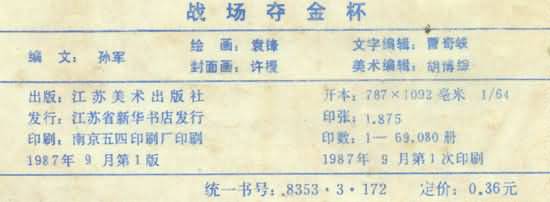 战场夺金杯
编文：孙军
绘画：袁锋
封面画：许樱
文字编辑：曹奇峡
美术编辑：胡博综
出版：江苏美术出版社
发行：江苏省新华书店发行
印刷：南京五四印刷厂印刷
1987年9月第1版
开本：787×1092毫米 1/64
印张：1.875
印数：1—69,080册
1987年9月第1次印刷
统一书号：8353·3·172 定价：0.36元